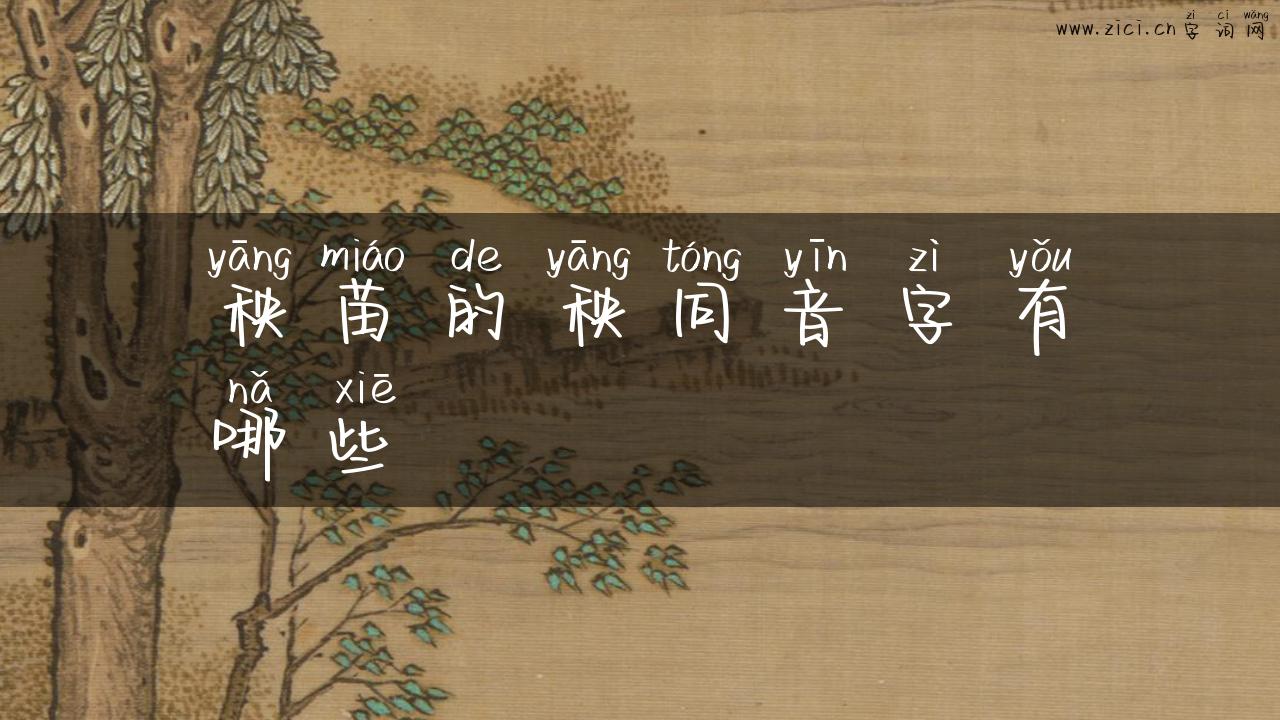 zì cí wǎng
www.zici.cn 字词网
yāng miáo de yāng tóng yīn zì yǒu
秧苗的秧同音字有
nǎ xiē
哪些